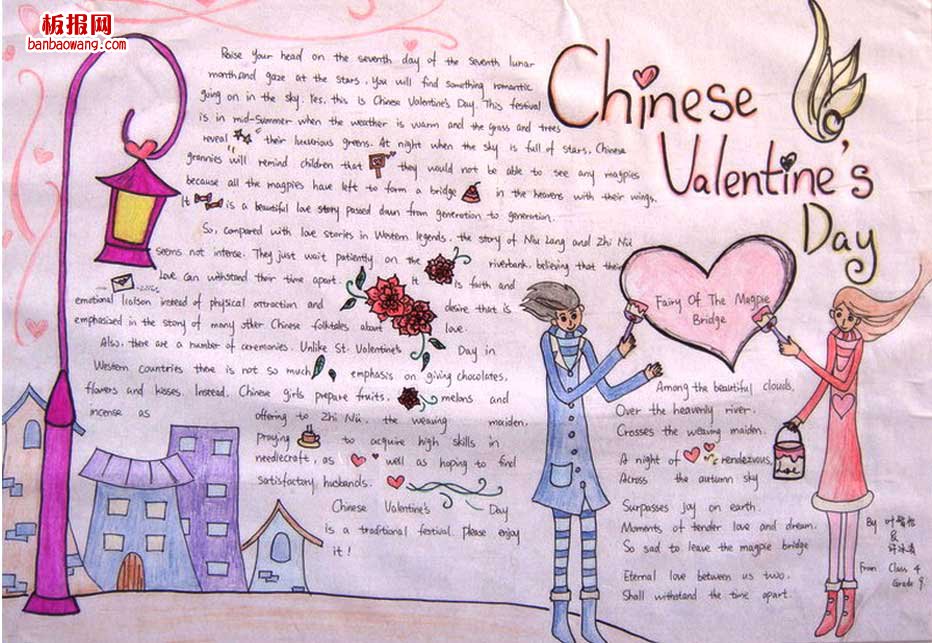 板报网
banbaowang.com
Chinese
Valentine's
Day
Raise your head on the seventh day of the seventh lunar
month,and gaze at the stars, you will find something romantic
going on in the sky. Yes, this is Chinese Valentine's Day. This festival
is in mid-summer when the weather is warm and the grass and trees
reveal their luxurious greens. At night when the sky is full of stars, Chinese
grannies will remind children that they would not be able to see any magpies
because all the magpies have left to form a bridge in the heavens with their wings.
It is a beautiful love story passed down from generation to generation.
So, compared with love stories in Western legends, the story of Niu Lang and Zhi Nü
seems not intense. They just wait patiently on the riverbank, believing that their
Love can withstand their time apart. It is faith and
emotional liaison instead of physical attraction and desire that is
emphasized in the story of many other Chinese folktales about love.
Also, there are a number of ceremonies. Unlike St. Valentine's Day in
Western countries there is not so much emphasis on giving chocolates,
flowers and kisses. Instead, Chinese girls prepare fruits, melons and
incense as offering to Zhi Nü, the weaving maiden,
praying to acquire high skills in
needlecraft, as well as hoping to find
satisfactory husbands.
Chinese Valentine's Day
is a traditional festival. Please enjoy
it!
Fairy Of The Magpie
Bridge
Among the beautiful clouds,
Over the heavenly river,
Crosses the weaving maiden.
A night of rendezvous,
Across the autumn sky
Surpasses joy on earth.
Moments of tender love and dream.
So sad to leave the magpie bridge
Eternal love between us two,
Shall withstand the time apart.
love
By 叶
及
许冰
From Class 4
Grade 9.